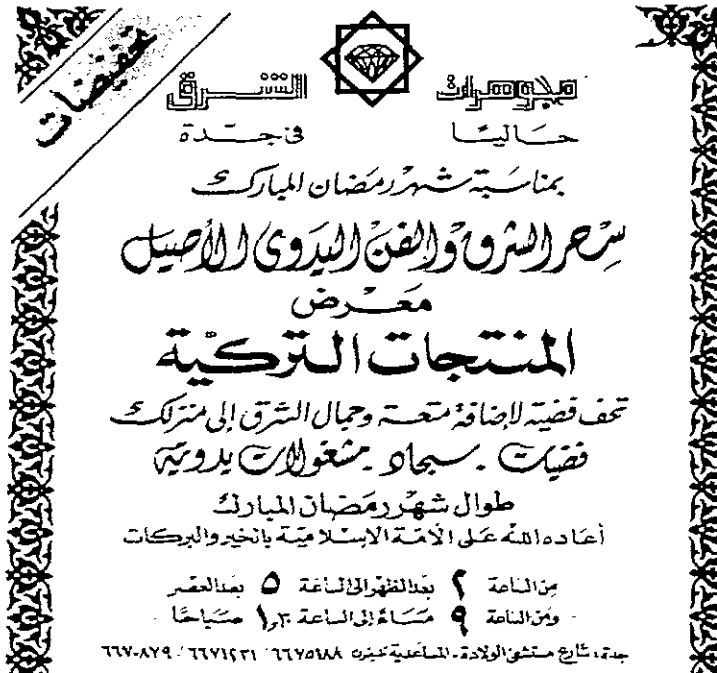 تخفيضات
مجوهرات الشرق
حاليًا في جدة
بمناسبة شهر رمضان المبارك
سحر الشرق والفن اليدوى الأصيل
معرض
المنتجات التركية
تحف فضية لإضافة متعة وجمال الشرق إلى منزلك
فضيات . سجاد . مشغولات يدوية
طوال شهر رمضان المبارك
أعاده الله على الأمة الاسلامية بالخير والبركات
من الساعة ٢ بعد الظهر الى الساعة ٥ بعد العصر
ومن الساعة ٩ مساءً الى الساعة ١,٣٠ صباحًا
جدة، شارع مستشفى الولادة - المساعدية